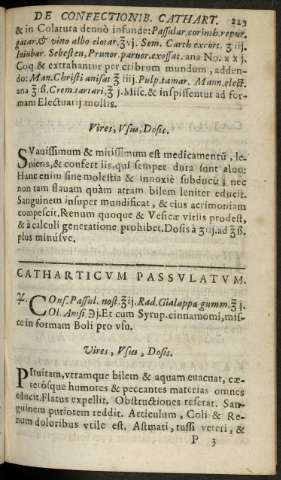 DE CONFECTIONIB. CATHART. 229
& in Colatura denuò infunde: Passular. corinth. repur.
gatar. & vino albo elotar. ℥vj. Sem. Carth excort. ℥iij.
Iuiubar. Sebesten, Prunor. paruor. exossat. ana No. xxj.
Coq & extrahantur per cribrum mundum, adden-
do: Man. Christi anisat ℥iiij. Pulp. tamar. Mann. elect.
ana ℥ß. Crem. tartari. ℥j. Misc. & inspissentur ad for-
mam Electuarij mollis.
Vires, Vsus, Dosis.
SVauissimum & mitissimum est medicamentũ, le-
niens, & confert iis, qui semper dura sunt aluo:
Hunc enim sine molestia & innoxiè subducit, nec
non tam flauam quàm atram bilem leniter educit.
Sanguinem insuper mundificat, & eius acrimoniam
compescit. Renum quoque & Vesicæ vitiis prodest,
& à calculi generatione prohibet. Dosis à ʒij. ad ℥ß.
plus minùsve.
CATHARTICVM PASSVLATVM.
♃. COnf. Passul. nost. ℥ij. Rad. Gialappa gumm. ℥j.
Ol. Anisi. ℈j. Et cum Syrup. cinnamomi, mis-
ce in formam Boli pro vsu.
Vires, Vsus, Dosis.
PItuitam, vtramque bilem & aquam euacuat, cæ-
terósque humores & peccantes materias omnes
educit. Flatus expellit. Obstructiones referat. San-
guinem puriorem reddit. Articulum, Coli & Re-
num doloribus vtile est. Astmati, tussi veteri, &
P 3